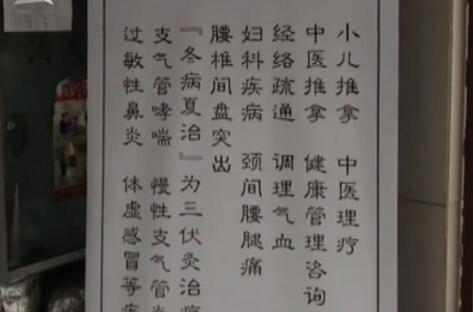 小儿推拿 中医理疗
中医推拿 健康管理咨询
经络疏通 调理气血
妇科疾病 颈间腰腿痛
腰椎间盘突出
『冬病夏治』为三伏灸治疗
支气管哮喘 慢性支气管炎
过敏性鼻炎 体虚感冒等疾